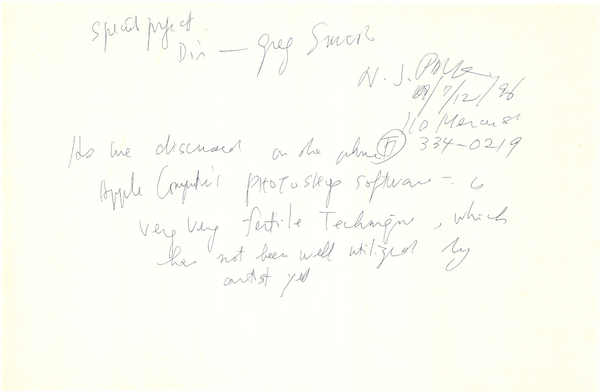 Special project
Dir — Greg
N. J. Paik
7/12/96
110 Mercer St
334-0219
As we discussed on the phone
Apple Computer's PHOTOSHOP software — is
very very fertile Technique, which
has not been well utilized by
artist yet